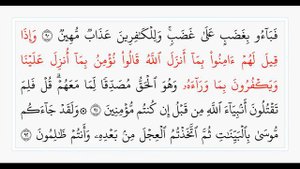 فَبَآءُو بِغَضَبٍ عَلَىٰ غَضَبٍۢ ۚ وَلِلْكَـٰفِرِينَ عَذَابٌۭ مُّهِينٌۭ ٩٠ وَإِذَا
قِيلَ لَهُمْ ءَامِنُوا۟ بِمَآ أَنزَلَ ٱللَّهُ قَالُوا۟ نُؤْمِنُ بِمَآ أُنزِلَ عَلَيْنَا
وَيَكْفُرُونَ بِمَا وَرَآءَهُۥ وَهُوَ ٱلْحَقُّ مُصَدِّقًۭا لِّمَا مَعَهُمْ ۗ قُلْ فَلِمَ
تَقْتُلُونَ أَنۢبِيَآءَ ٱللَّهِ مِن قَبْلُ إِن كُنتُم مُّؤْمِنِينَ ٩١ ۞ وَلَقَدْ جَآءَكُم
مُّوسَىٰ بِٱلْبَيِّنَـٰتِ ثُمَّ ٱتَّخَذْتُمُ ٱلْعِجْلَ مِنۢ بَعْدِهِۦ وَأَنتُمْ ظَـٰلِمُونَ ٩٢